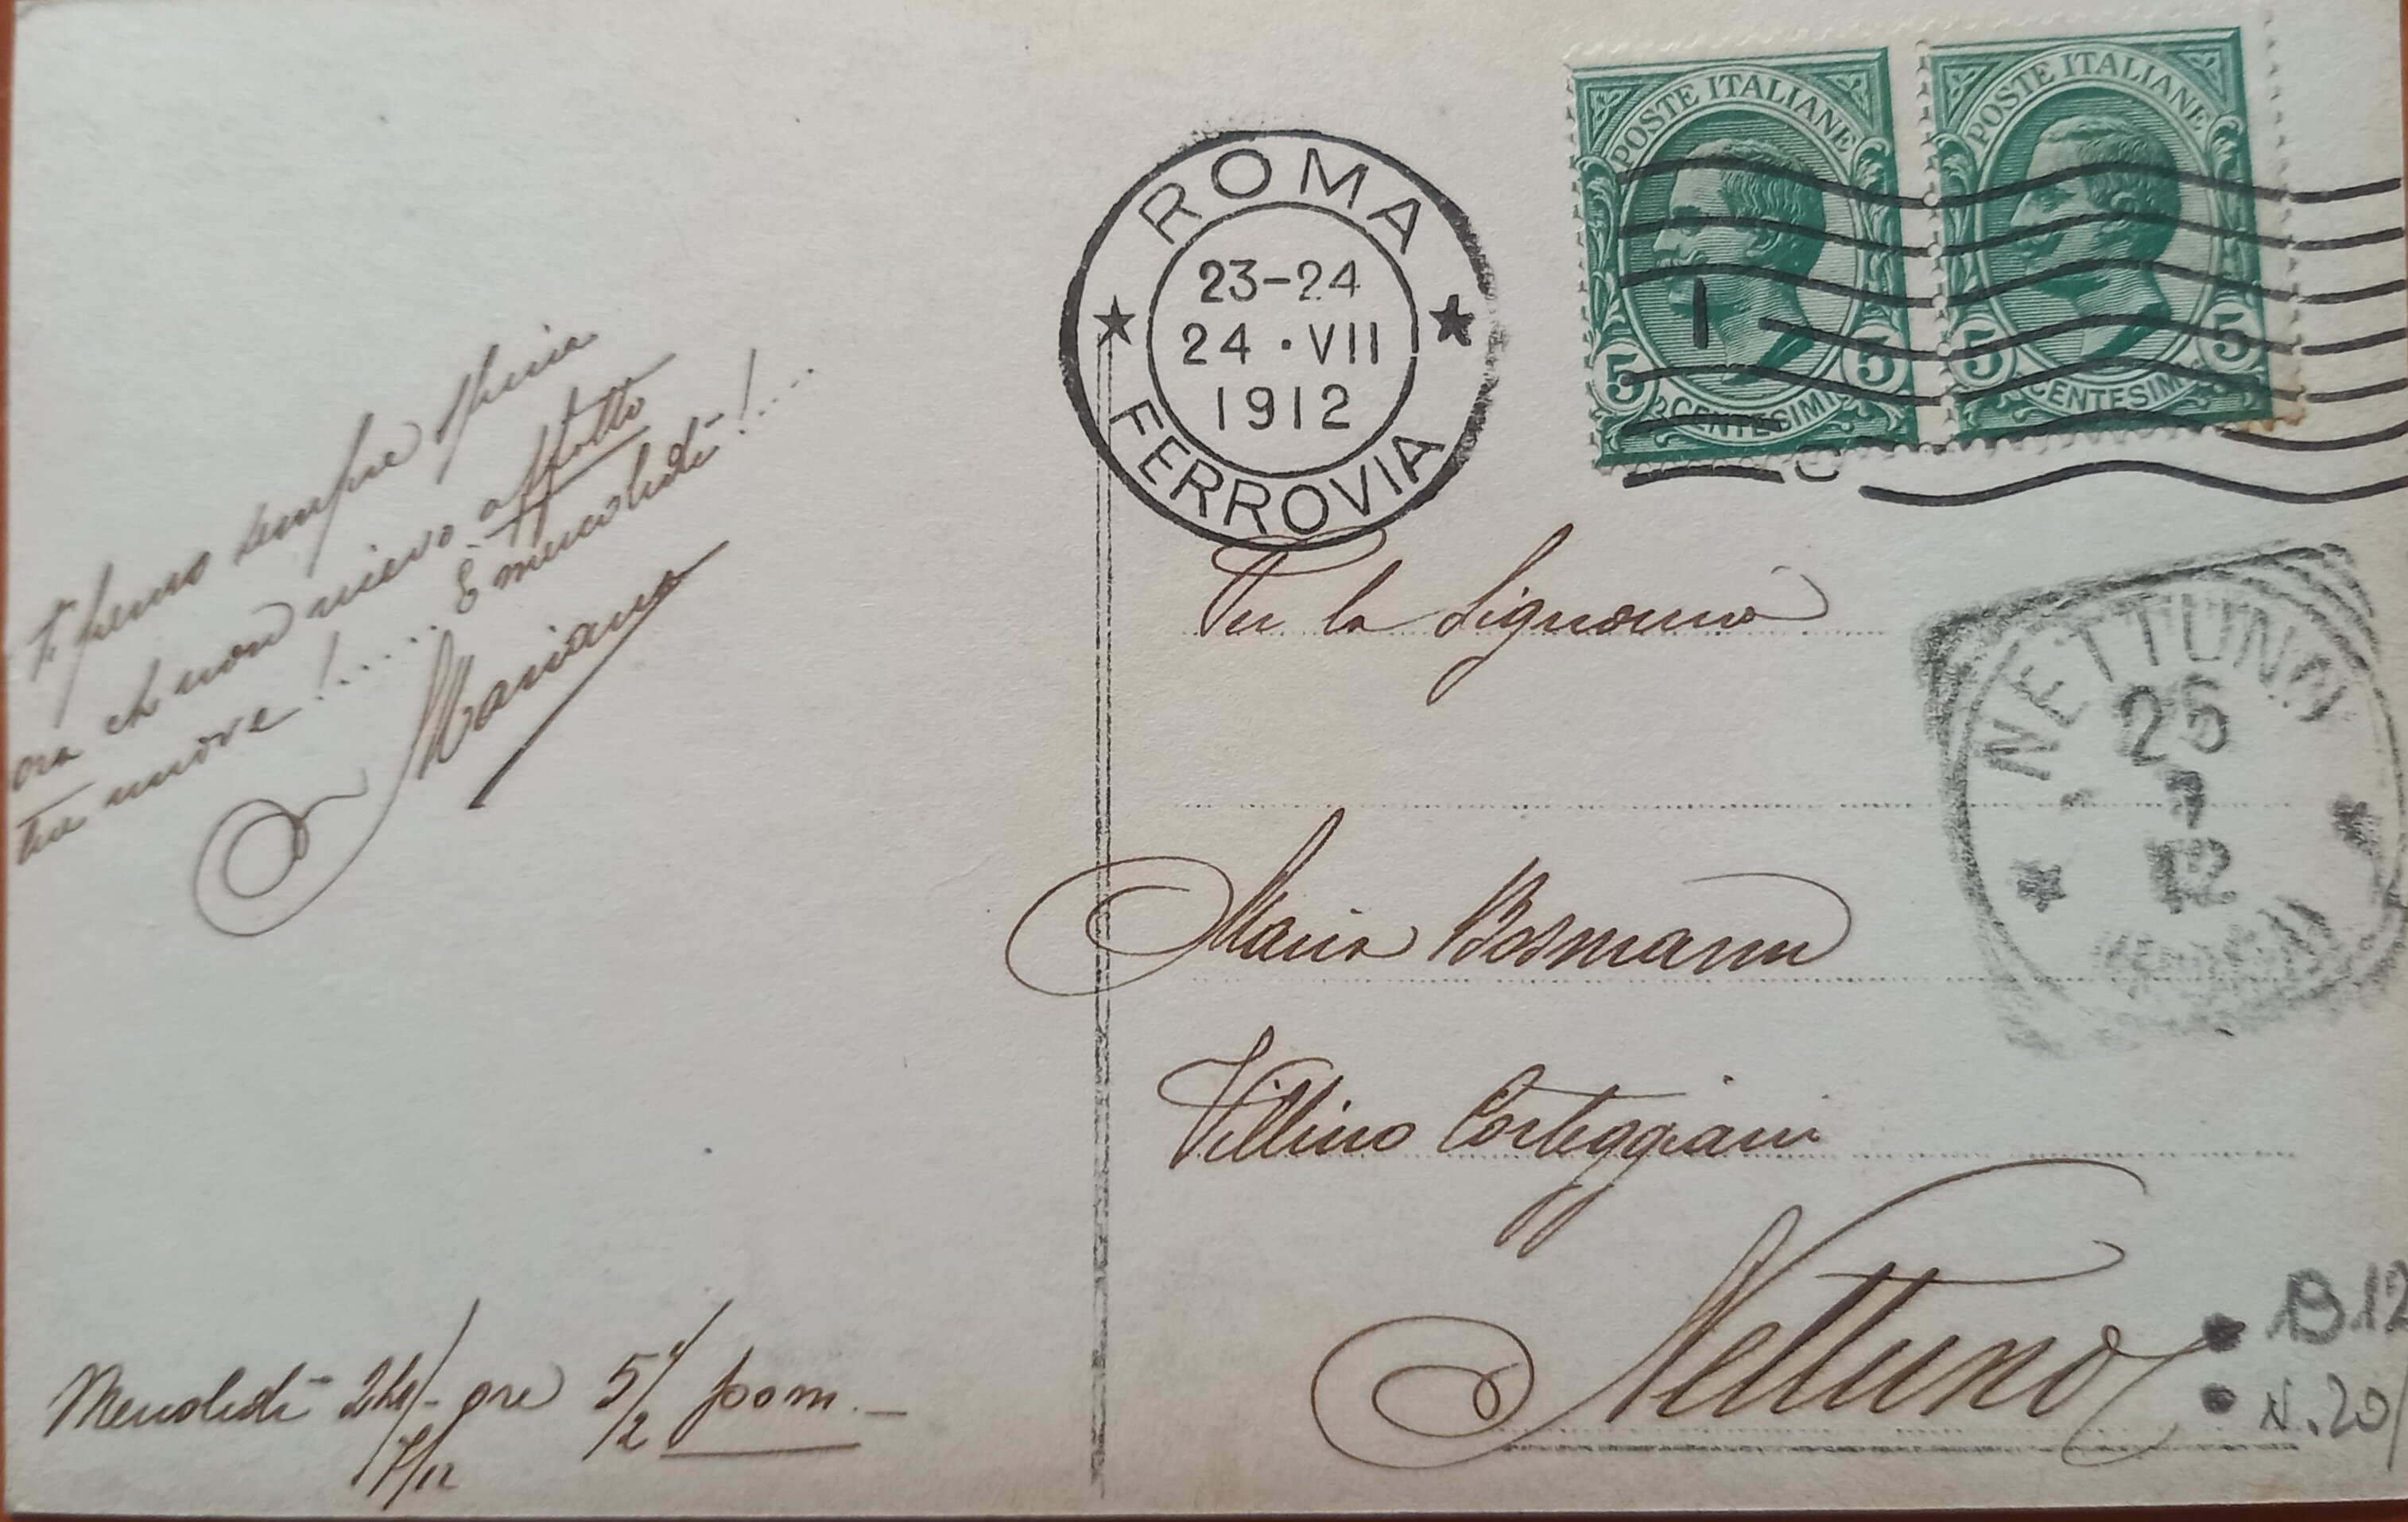 Ti penso sempre
ora che non ricevo affatto
tue nuove!..... E mercoledì!....
Mariano
Mercoledì 24/- ore 5 1/2 pom.–
7/12
POSTE ITALIANE
5 5
CENTESIMI
POSTE ITALIANE
5 5
CENTESIMI
ROMA
23-24
24·VII
1912
FERROVIA
Per la Signorina
NETTUNO
25
7
12
Maria Bosmann
Villino Corteggiani
Nettuno
B12
N.20/